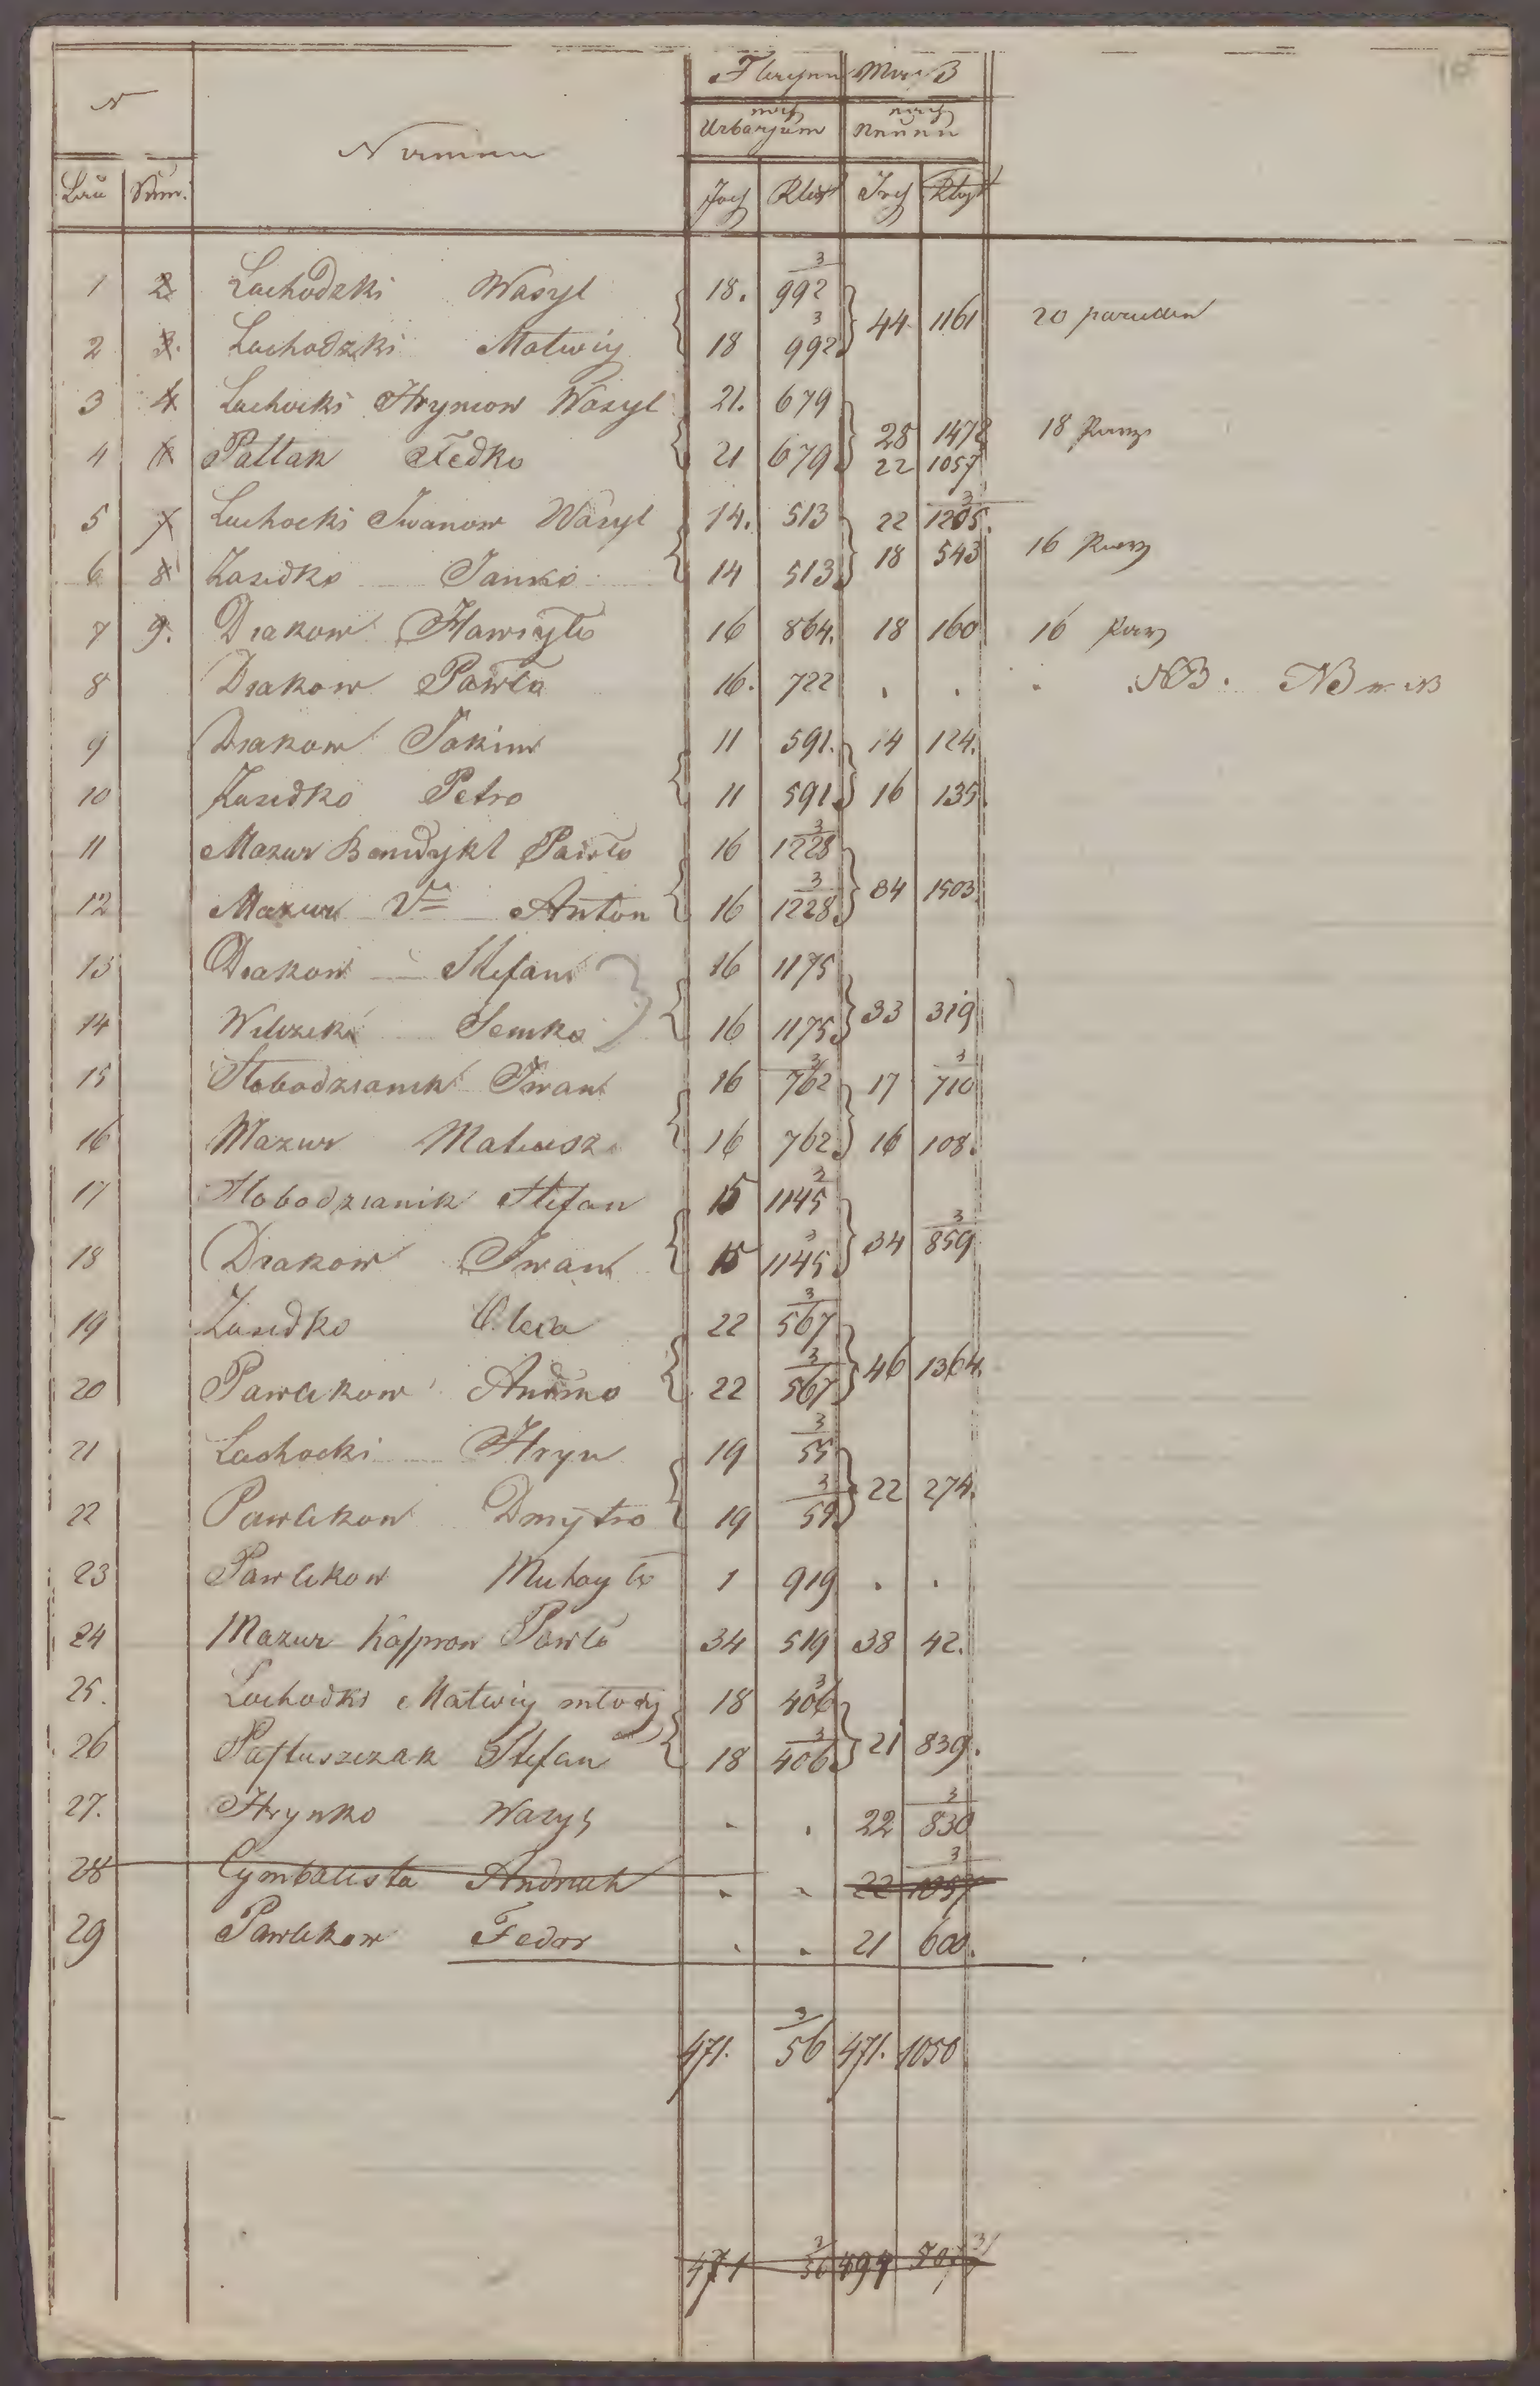 N Flaynn Maaß
Namen nach Urbaryum nach Neuen
Lau Num. Joch Klft Joch Klft
1 2 Lachodzki Wasyl 18. 992 3
44 1161 20 parcellen
2 3. Lachodzki Matwiy 18 992 3
3 4 Lachocki Hryniow Wasyl 21. 679
28 1472 18 Parz
4 Pattak Fedko 21 679 22 1057
5 Luchocki Iwanow Wasyl 14. 513 22 1205. 3
18 543 16 Parz
6 8 Zasidko Janko 14 513
7 9. Diakow Hawryło 16 864. 18 160 16 Parz
8 Diakow Pawło 16. 722 . . . NB.
9 Diakow Jakim 11 591. 14 124.
10 Zasidko Petro 11 591. 16 135.
11 Mazur Benedykt Pawło 16 1228 3
34 1503.
12 Mazur Anton 16 1228 3
13 Diakow Stefan 16 1175
33 319
14 Semko 16 1175
15 Słobodzianik Iwan 16 762 3 17 710 3
16 Mazur Mateusz 16 762 16 108.
17 Słobodzianik Stefan 15 1145 3
34 859 3
18 Diakow Iwan 15 1145 3
19 Zasidko Olexa 22 567 3
46 1364.
20 Pawlikow 22 567 3
21 Lachocki Hryn 19 55 3
22 274.
22 Pawlikow Dmytro 19 59 3
23 Pawlikow Muhayło 1 919 . .
24 Mazur Kasprow Pawło 34 519 38 42.
25. Lachodki Matwiy młody 18 406 3
21 839.
26 Pastuszczak Stefan 18 406 3
27. Hrynko Wasyl . . 22 830 3
28 Cymbalista Andruch . . 22 1057 3
29 Pawlikow Fedor . . 21 600.
471. 56 3 471. 1050
471 56 3